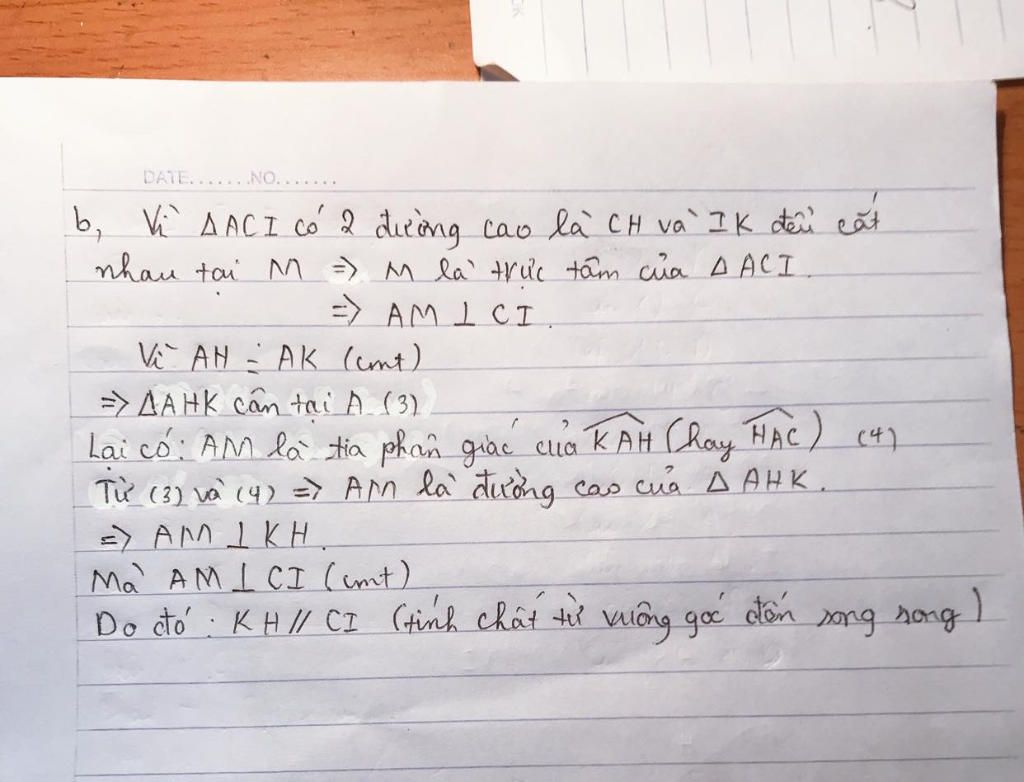 DATE.......NO.......
b, Vì ΔACI có 2 đường cao là CH và IK đều cắt
nhau tại M => M là trực tâm của ΔACI.
=> AM ⊥ CI.
Vì AH = AK (cmt)
=> ΔAHK cân tại A (3)
Lại có: AM là tia phân giác của \widehat{KAH} (hay \widehat{HAC}) (4)
Từ (3) và (4) => AM là đường cao của Δ AHK.
=> AM ⊥ KH.
Mà AM ⊥ CI (cmt)
Do đó: KH // CI (tính chất từ vuông góc đến song song)